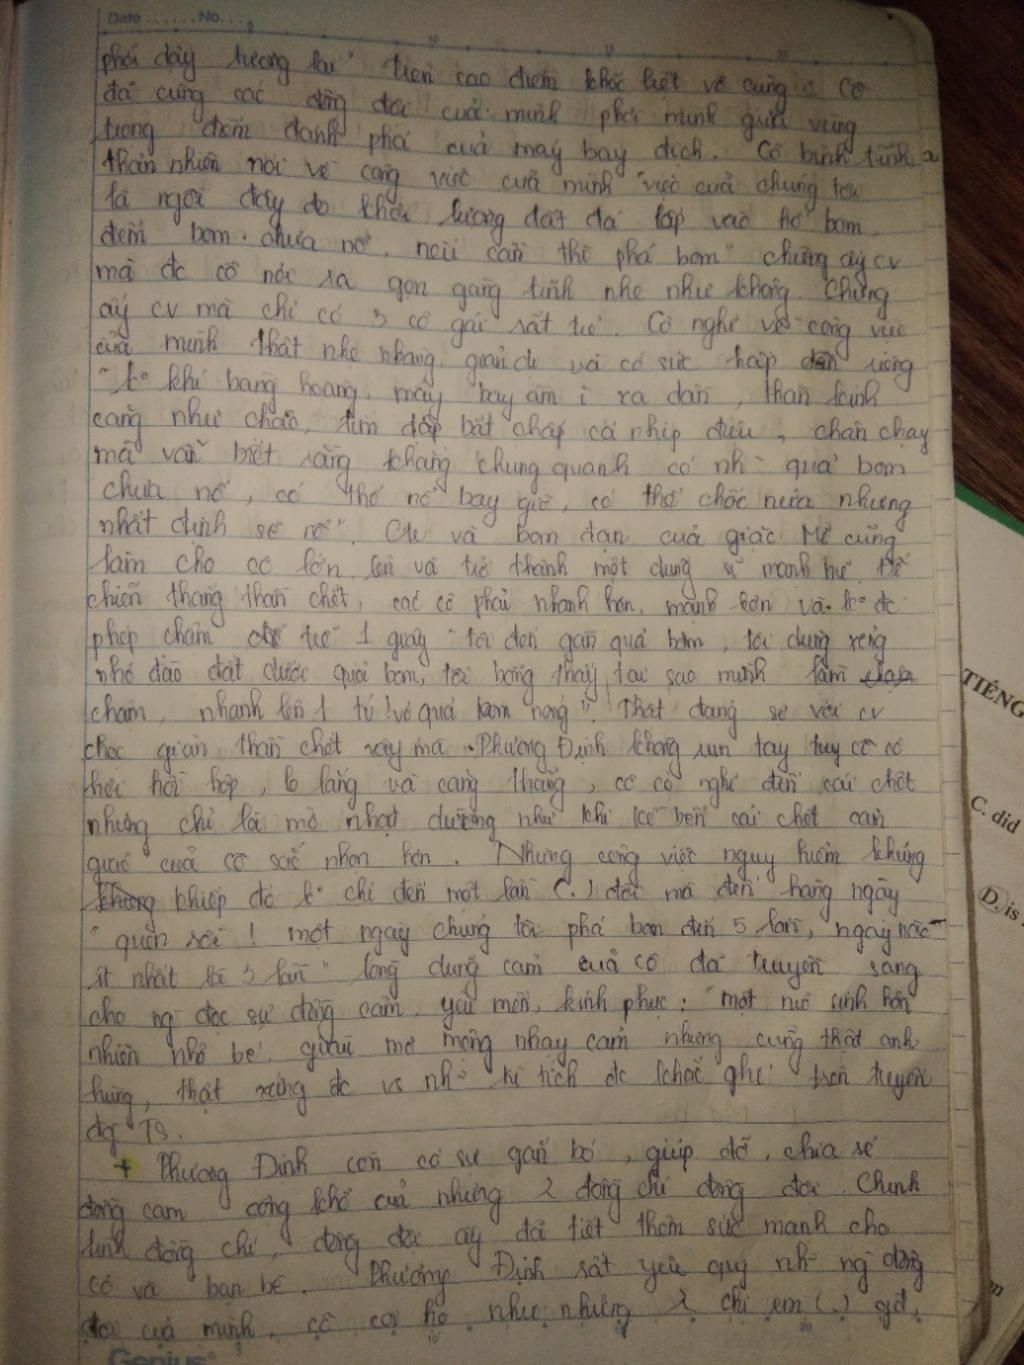 Date ...... No. ...
phơi dậy tương lai" trên cao điểm khốc liệt vô cùng. Cô
đã cùng các đồng đội của mình phơi mình giữa vùng
trọng điểm đánh phá của máy bay địch. Cô bình tĩnh
thản nhiên nói về công việc của mình "việc của chúng tôi
là ngồi đây đo khối lượng đất đá lấp vào hố bom,
đếm bom chưa nổ, nếu cần thì phá bom" chừng ấy cv
mà đc cô nói ra gọn gàng tính nhẹ như không. Chừng
ấy cv mà chỉ có 3 cô gái rất trẻ. Cô nghĩ về công việc
của mình thật nhẹ nhàng, giản dị và có sức hấp dẫn riêng
"ko khí bàng hoàng, máy bay ầm ì xa dần, thần kinh
căng như chão, tim đập bất chấp cả nhịp điệu, chân chạy
mà vẫn biết rằng khắp chung quanh có nh~ quả bom
chưa nổ, có thể nổ bây giờ, có thể chốc nữa nhưng
nhất định sẽ nổ". Cv và bom đạn của giặc Mĩ cũng
làm cho cô lớn lên và trở thành một dũng sĩ mạnh mẽ. Để
chiến thắng thần chết, các cô phải nhanh hơn, mạnh hơn và ko đc
phép chậm trễ 1 giây "tôi đến gần quả bom, tôi dùng xẻng
nhỏ đào đất dưới quả bom, tôi bỗng thấy tại sao mình làm
chậm, nhanh lên 1 tí! vỏ quả bom nóng". Thật đáng sợ với cv
chọc giận thần chết này mà Phương Định không run tay tuy cô có
hơi hồi hộp, lo lắng và căng thẳng, cô có nghĩ đến cái chết
nhưng chỉ là mờ nhạt dường như khi kề bên cái chết cảm
giác của cô sắc nhọn hơn. Nhưng công việc nguy hiểm khủng
khiếp đó ko chỉ đến một lần (.) đời mà đến hàng ngày
"quen rồi! một ngày chúng tôi phá bom đến 5 lần, ngày nào
ít nhất là 3 lần" lòng dũng cảm của cô đã truyền sang
cho ng đọc sự đồng cảm, yêu mến, kính phục: "một nữ sinh hồn
nhiên nhỏ bé, giàu mơ mộng nhạy cảm nhưng cũng thật anh
hùng, thật xứng đc vs nh~ kì tích đc khắc ghi trên tuyến
đg TS.
+ Phương Định còn có sự gắn bó, giúp đỡ, chia sẻ
đồng cam cộng khổ của những 2 đồng chí đồng đội. Chính
tình đồng chí, đồng đội ấy đã tiết thêm sức mạnh cho
cô và bạn bè. Phương Định rất yêu quý nh~ ng đồng
đội của mình, cô coi họ như những 2 chị em (.) gđ,
Genius
TIẾNG
C. did
D. is